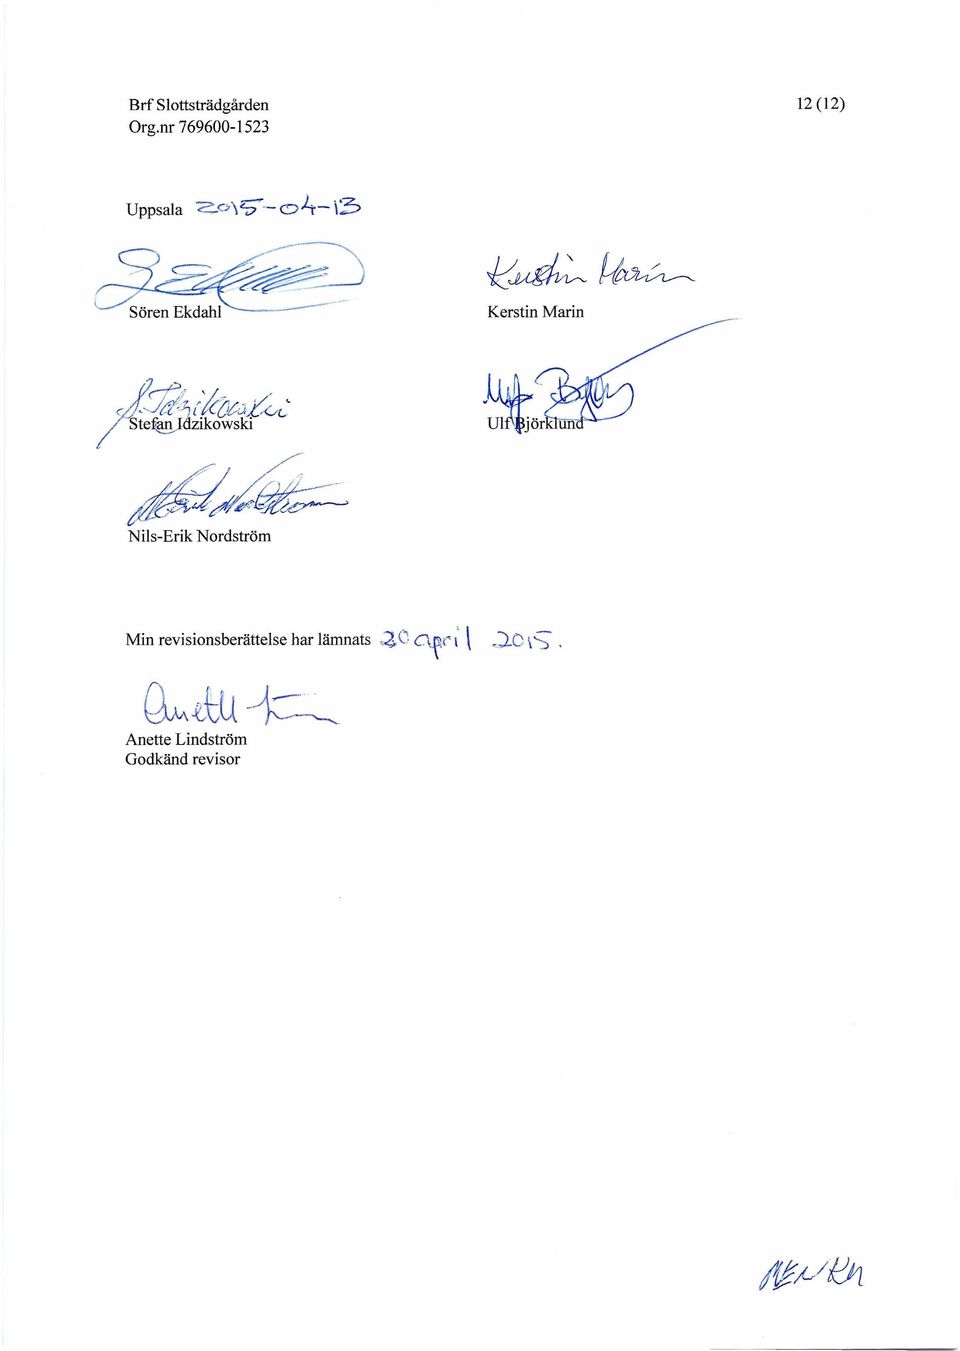 Brf Slottsträdgården 12 (12)
Org.nr 769600-1523
Uppsala 2015-04-13
Sören Ekdahl
Kerstin Marin
Kerstin Marin
S Idzikowski
Stefan Idzikowski
Ulf
Ulf Björklund
Nils-Erik Nordström
Min revisionsberättelse har lämnats 20 april 2015.
Anette
Anette Lindström
Godkänd revisor